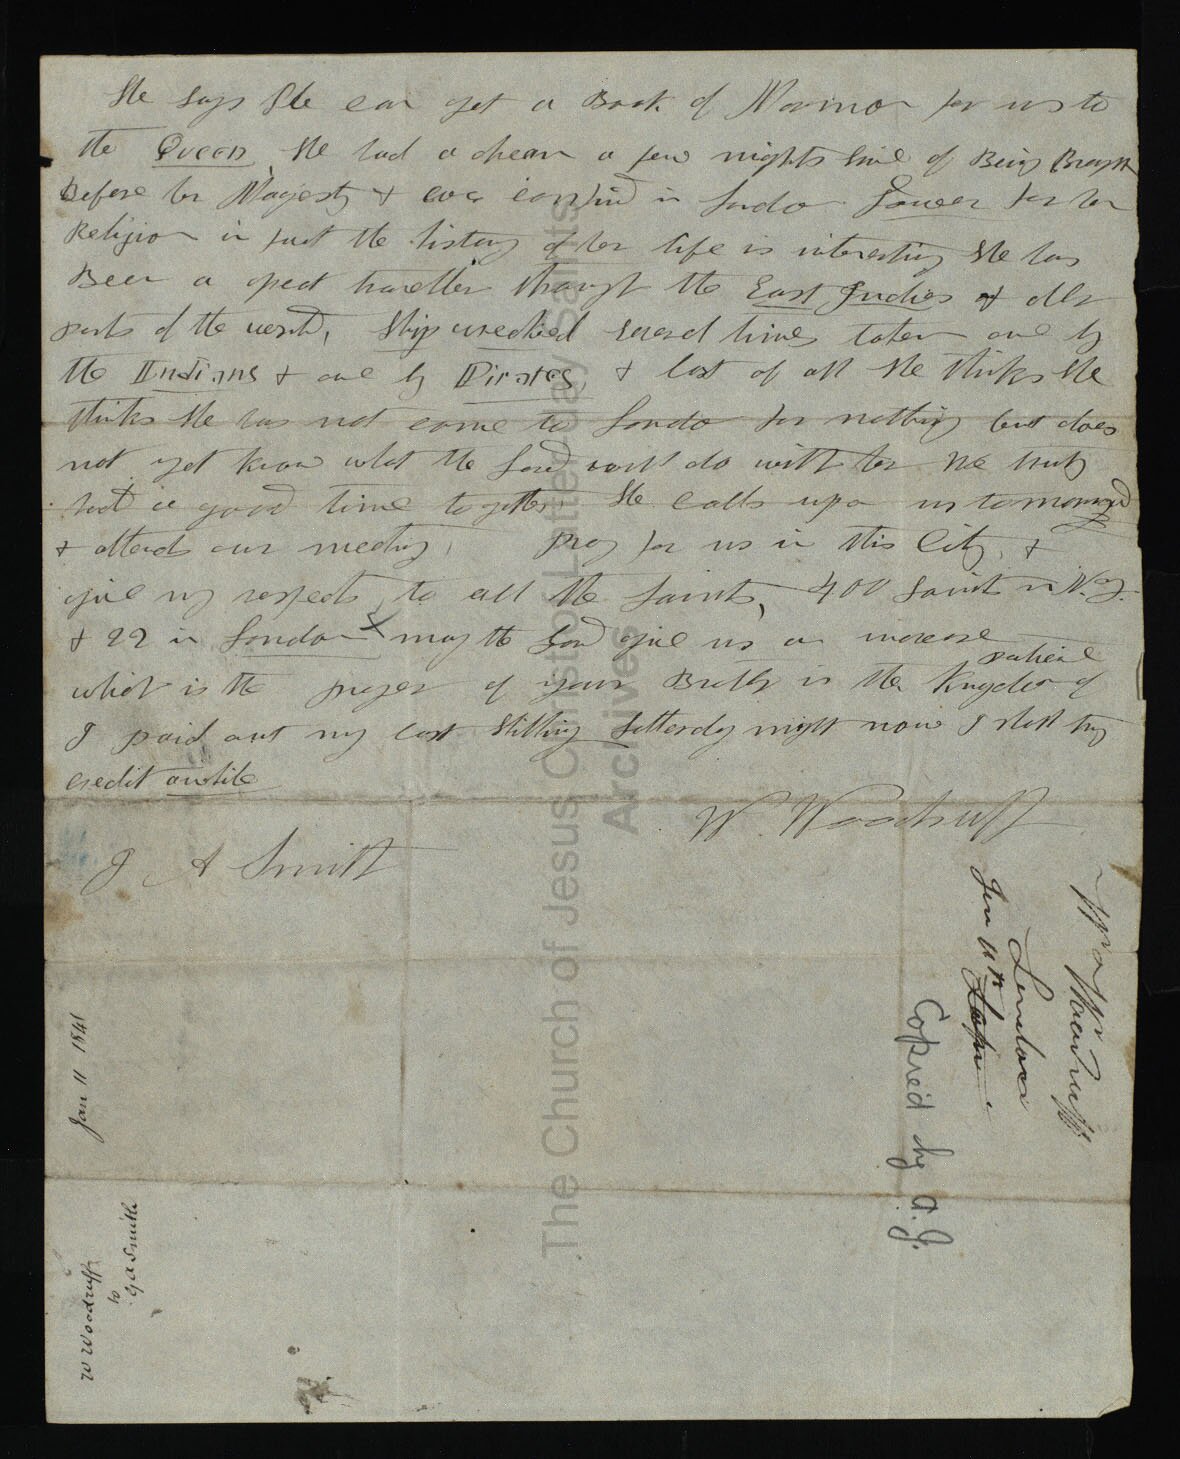 She says she can get a Book of Mormon for us to
the Queen she had a dream a few nights since of Being Brought
Before her Majesty & was confind in London Tower for her
Religion in fact the history of her life is interesting she has
Been a great traveller through the East Indies & other
parts of the world, Ship wrecked several times taken once by
the Indians & once by Pirates, & last of all she thinks she
thinks she has not come to London for nothing but does
not yet know what the Lord will do with her we truly
had a good time together she calls upon us to morrow
& attends our meeting, pray for us in this City, &
give my respects to all the Saints, 400 Saints in N.Y.
& 22 in London & may the Lord give us an increase
which is the prayer of your Brother in the Kingdom of patience
I paid out my last Shilling Satterday night now I shall try
credit awhile
W. Woodruff
G A Smith
Jan 11 1841
W Woodruff
to
G A Smith
Woodruff
London
Jan 11th
Copied by A. J.
The Church of Jesus Christ of Latter-day Saints
Archives